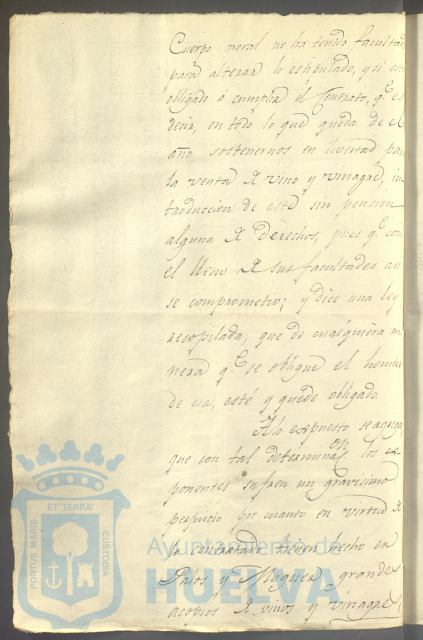 Cuerpo moral no ha tenido facultad
para alterar lo estipulado, y si está
obligado á cumplir el Contrato, q.e es
decir, en todo lo que queda de el
año sostenernos en livertad para
la venta de vino y vinagre, in
troduccion de este sin pension
alguna de derechos, pues q.e con
el lleno de sus facultades an
se comprometio; y dice una ley
recopilada, que de cualquiera ma
nera q.e se obligue el hombre
de esa, esté y quede obligado.
A lo expuesto se agrega,
que con tal determinas.on los es
ponentes sufren un gravisimo
perjuicio por cuanto en virtud de
lo contratado tienen hecho en
Palos y Moguer grandes
acopios de vinos y vinagres,
PORTUS MARIS
ET TERRAE
CUSTODIA
Ayuntamiento de
HUELVA